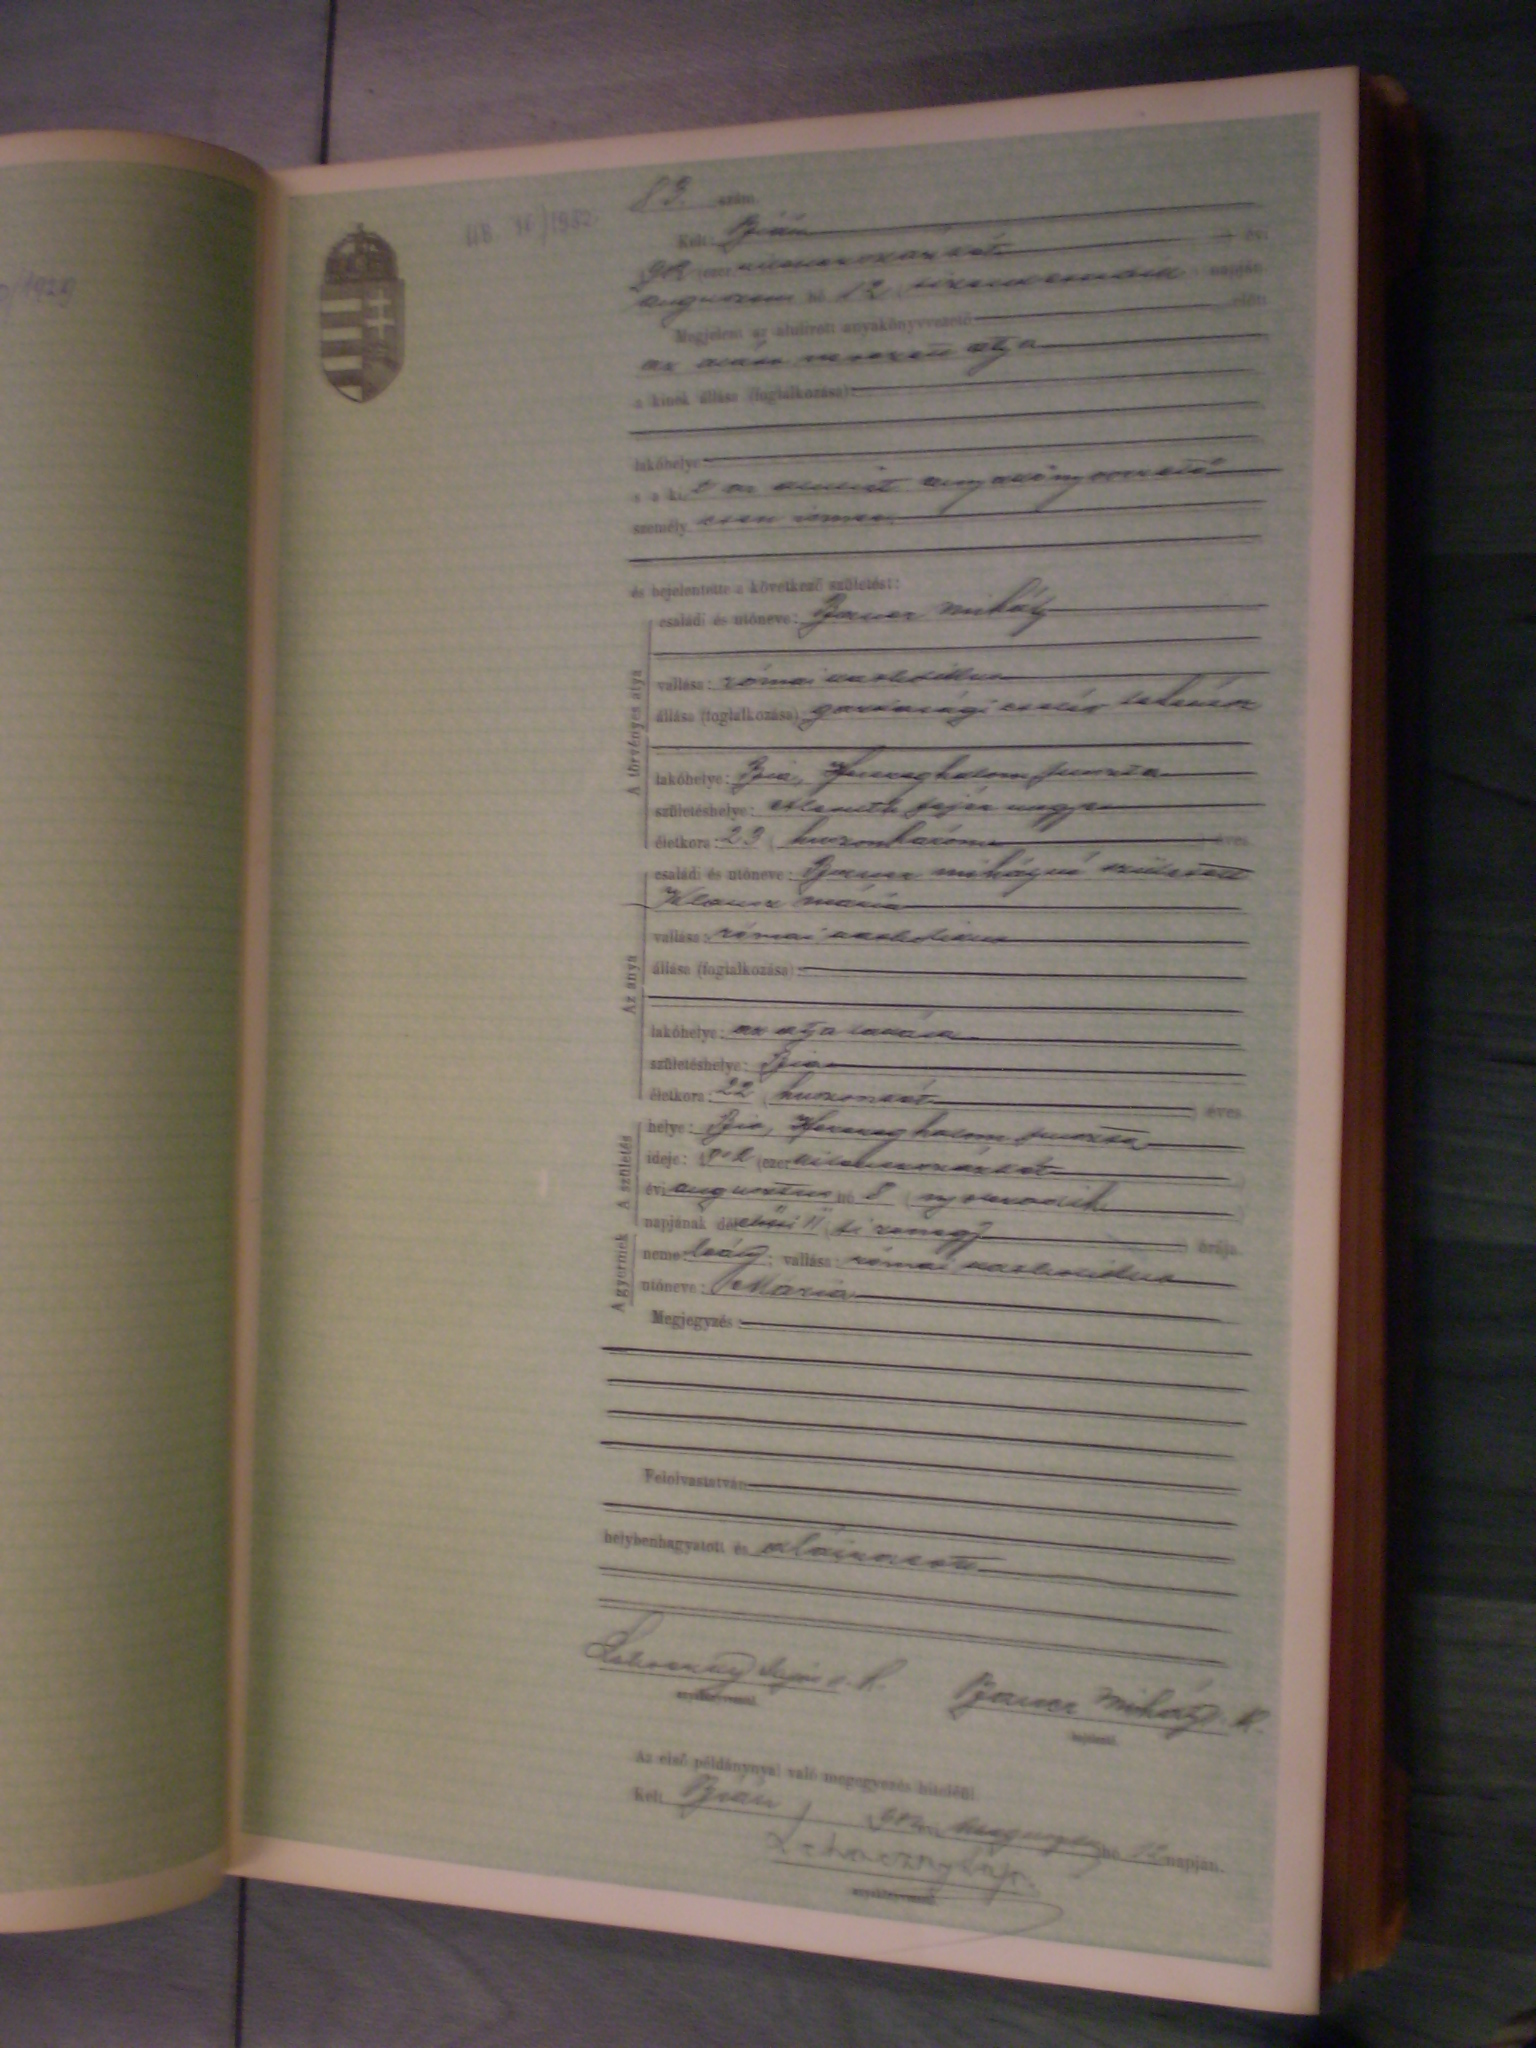 0/1929
118 16/1982.
83. szám
Kelt: Bián
1902 (ezer kilenczszázkét) évi
augusztus hó 12 (tizenkettedik) napján
Megjelent az alulírott anyakönyvvezető előtt
az alább nevezett atya
a kinek állása (foglalkozása):
lakóhelye:
s a kit az alulírt anyakönyvvezető
személyesen ismer.
és bejelentette a következő születést:
A törvényes atya
családi és utóneve: Bauer Mihály
vallása: római katholikus
állása (foglalkozása) gazdasági cseléd
lakóhelye: Bia, Herczeghalom puszta
születéshelye:
életkora: 23 (huszonhárom) éves
Az anya
családi és utóneve: Bauer Mihályné született
Klausz Mária
vallása: római katholikus
állása (foglalkozása):
lakóhelye: az atya lakása
születéshelye: Bia
életkora: 22 (huszonkét) éves
A születés
helye: Bia, Herczeghalom puszta
ideje: 1902 (ezer kilenczszázkét)
évi augusztus hó 8 (nyolczadik)
napjának délelőtti 11 (tizenegy) órája
A gyermek
neme: leány; vallása: római katholikus
utóneve: Mária
Megjegyzés:
Felolvastatván
helybenhagyatott és aláíratott
Lajos s. k. Bauer Mihály s. k.
anyakönyvvezető. bejelentő.
Az első példánynyal való megegyezés hiteléül
Kelt Bián, 1902 augusztus hó 12 napján.
anyakönyvvezető.